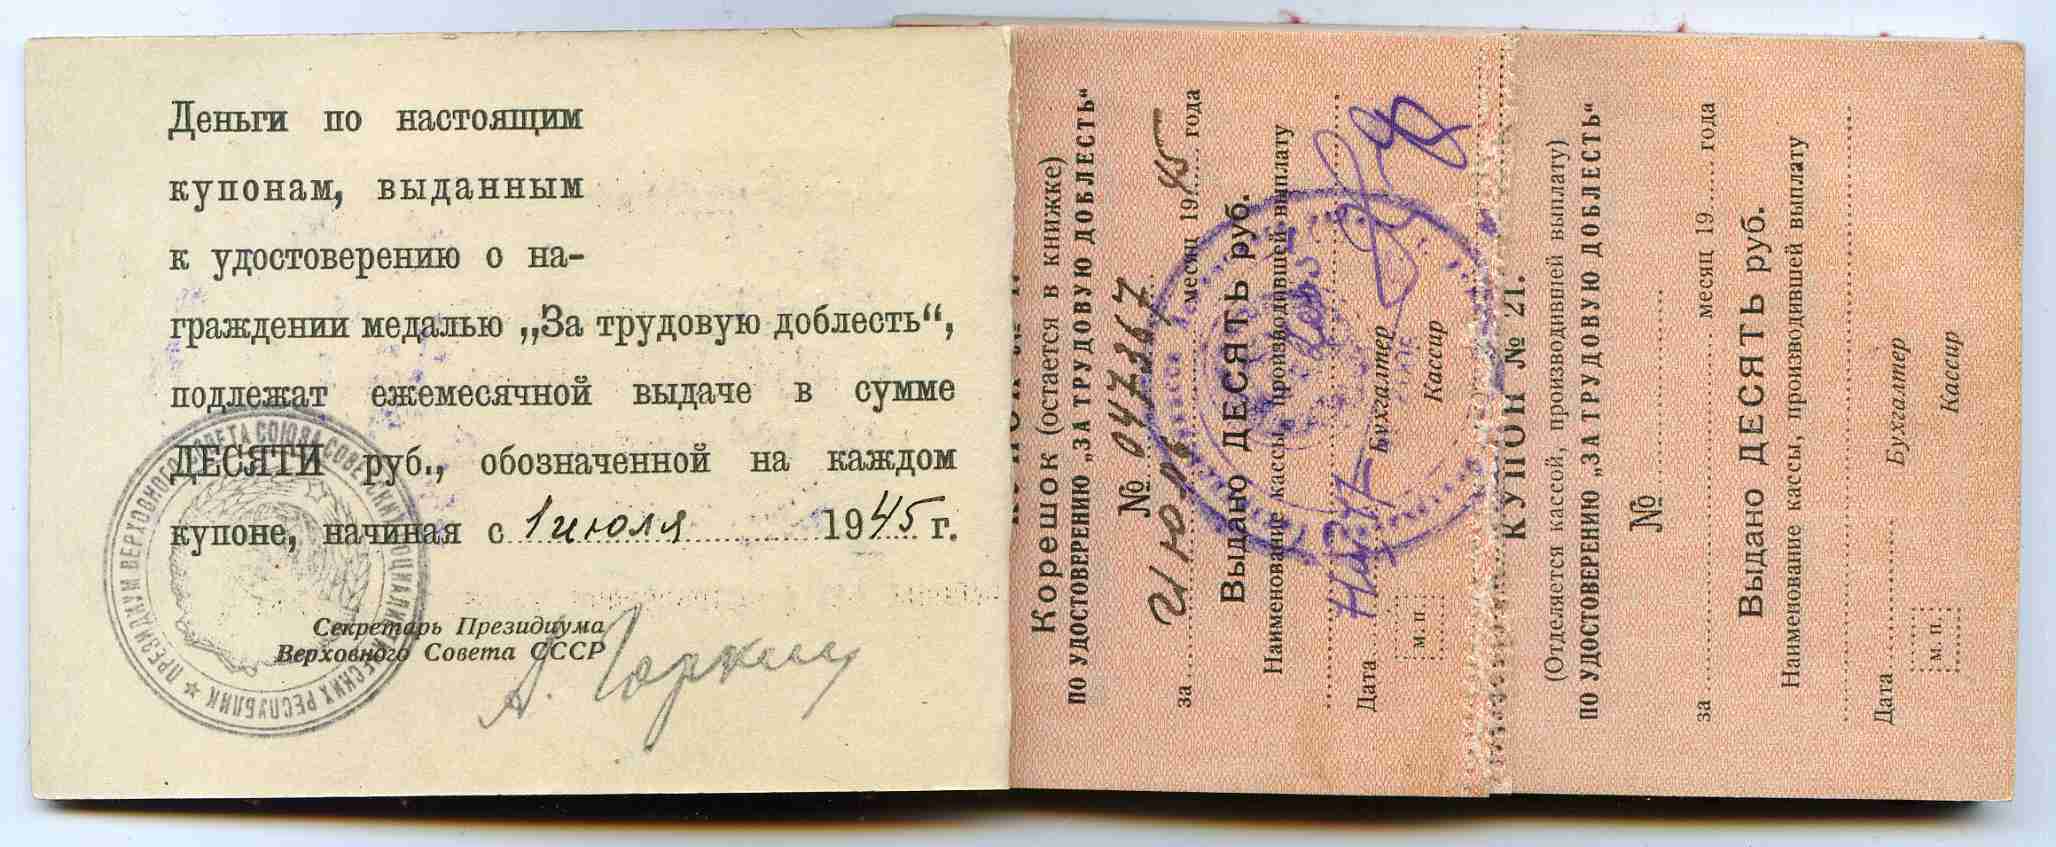 Деньги по настоящим
купонам, выданным
к удостоверению о на-
граждении медалью „За трудовую доблесть“,
подлежат ежемесячной выдаче в сумме
ДЕСЯТИ руб., обозначенной на каждом
купоне, начиная с 1 июля 1945 г.
Секретарь Президиума
Верховного Совета СССР
А. Горкин
ПРЕЗИДИУМ ВЕРХОВНОГО СОВЕТА СОЮЗА СОВЕТСКИХ СОЦИАЛИСТИЧЕСКИХ РЕСПУБЛИК
Корешок (остается в книжке)
ПО УДОСТОВЕРЕНИЮ „ЗА ТРУДОВУЮ ДОБЛЕСТЬ“
№ 047367
за июль месяц 1945 года
Выдано ДЕСЯТЬ руб.
Наименование кассы, производившей выплату
Дата
Бухгалтер
м. п.
Кассир
КУПОН № 21.
(Отделяется кассой, производившей выплату)
ПО УДОСТОВЕРЕНИЮ „ЗА ТРУДОВУЮ ДОБЛЕСТЬ“
№
за месяц 19 года
Выдано ДЕСЯТЬ руб.
Наименование кассы, производившей выплату
Дата
Бухгалтер
м. п.
Кассир